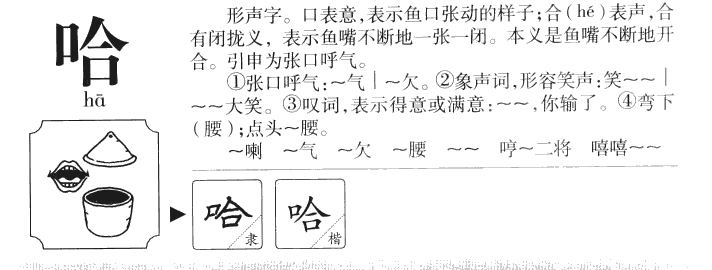 哈
hā
形声字。口表意,表示鱼口张动的样子;合(hé)表声,合
有闭拢义，表示鱼嘴不断地一张一闭。本义是鱼嘴不断地开
合。引申为张口呼气。
①张口呼气:～气｜～欠。②象声词,形容笑声:笑～～｜
～～大笑。③叹词,表示得意或满意:～～,你输了。④弯下
(腰);点头～腰。
～喇 ～气 ～欠 ～腰 ～～ 哼～二将 嘻嘻～～
哈 隶
哈 楷